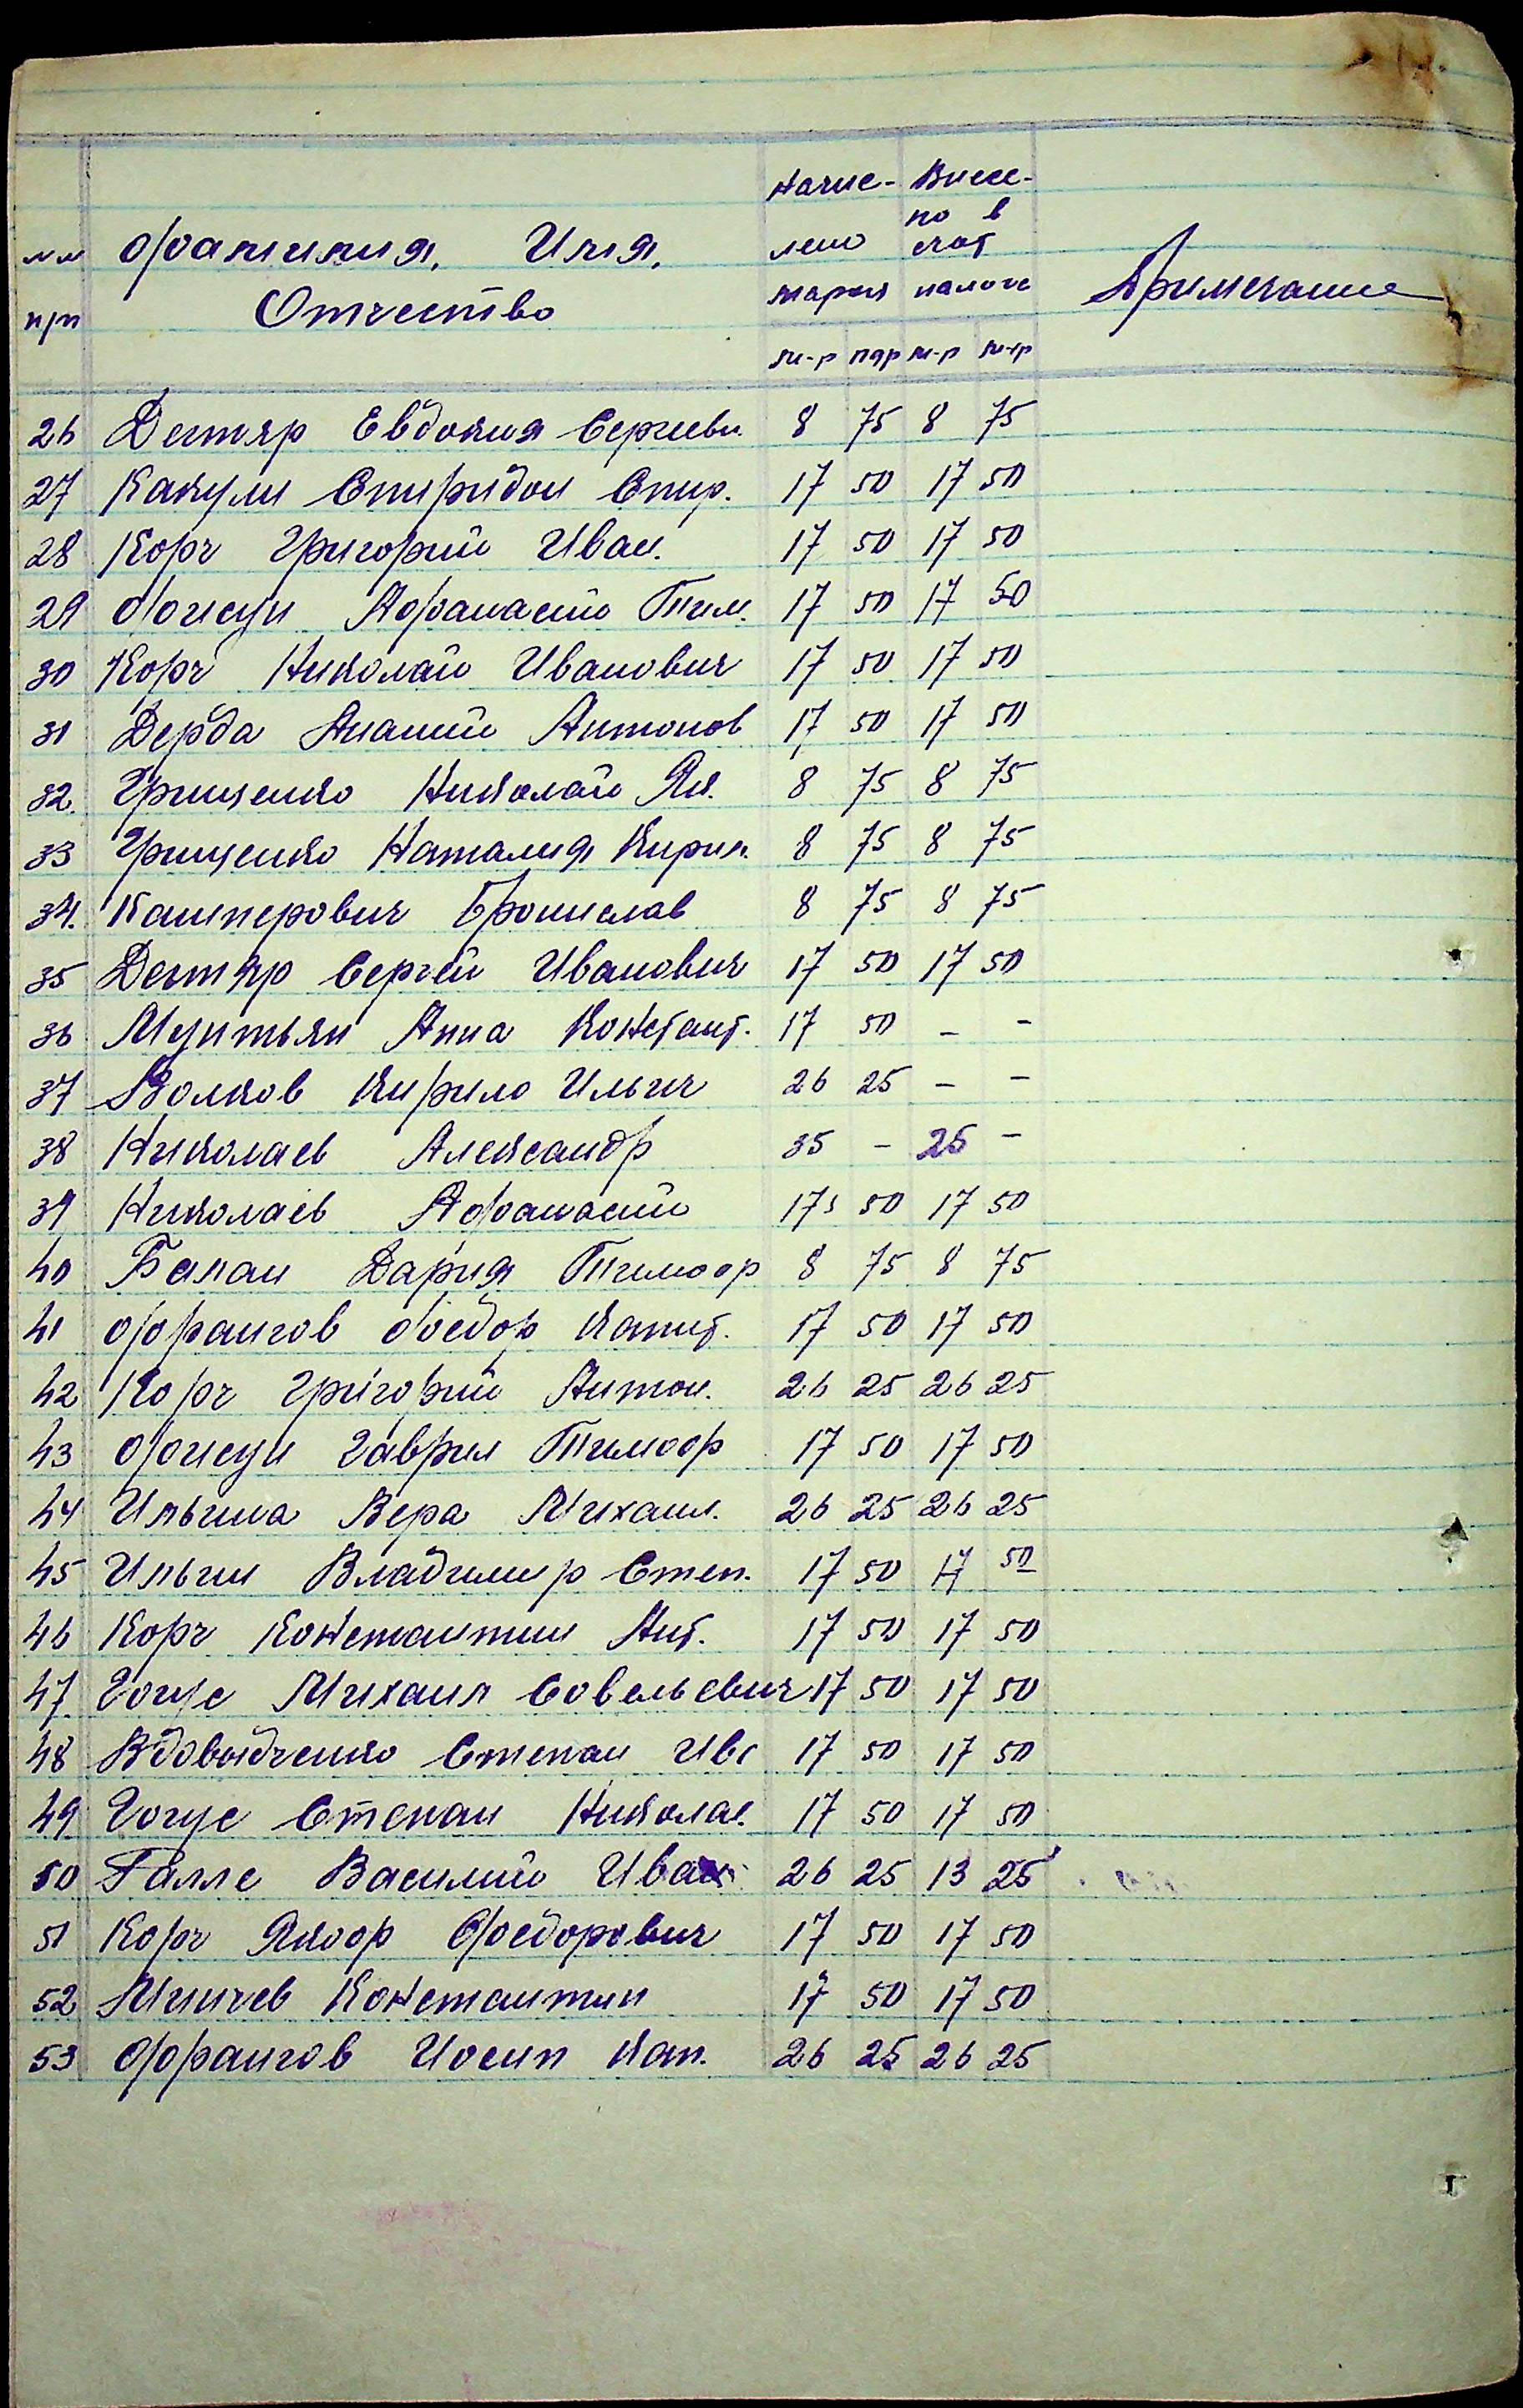 №№ Фамилия, Имя, Начис- Внесе-
но в
лено счот
п/п Отчество марок налога Примечание
м-р пфр м-р м-р
26 Дегтяр Евдокия Сергиевн. 8 75 8 75
27 Какули Спиридон Спир. 17 50 17 50
28 Корч Григорий Иван. 17 50 17 50
29 Фочеун Афанасий Тим. 17 50 17 50
30 Корч Николай Иванович 17 50 17 50
31 Дерда Ананий Антонов 17 50 17 50
32. Грищенко Николай Як. 8 75 8 75
33 Грищенко Наталия Кирил. 8 75 8 75
34. Кашперович Бронислав 8 75 8 75
35 Дегтяр Сергей Иванович 17 50 17 50
36 Мунтьян Анна Констант. 17 50 - -
37 Волков Кирило Ильич 26 25 - -
38 Николаев Александр 35 - 25 -
39 Николаев Афанасий 17 50 17 50
40 Балан Дария Тимофр 8 75 8 75
41 Франгов Фоедор Капит. 17 50 17 50
42 Корч Григорий Антон. 26 25 26 25
43 Фочеун Гаврил Тимофр 17 50 17 50
44 Ильина Вера Михаил. 26 25 26 25
45 Ильин Владимир Степ. 17 50 17 50
46 Корч Константин Ант. 17 50 17 50
47. Гогус Михаил Совельевич 17 50 17 50
48 Вдовыдченко Степан Ива 17 50 17 50
49 Гогус Степан Николае. 17 50 17 50
50 Галле Василий Иван 26 25 13 25
51 Корч Якоор Фоедорович 17 50 17 50
52 Минчев Константин 17 50 17 50
53 Франгов Иосип Кап. 26 25 26 25